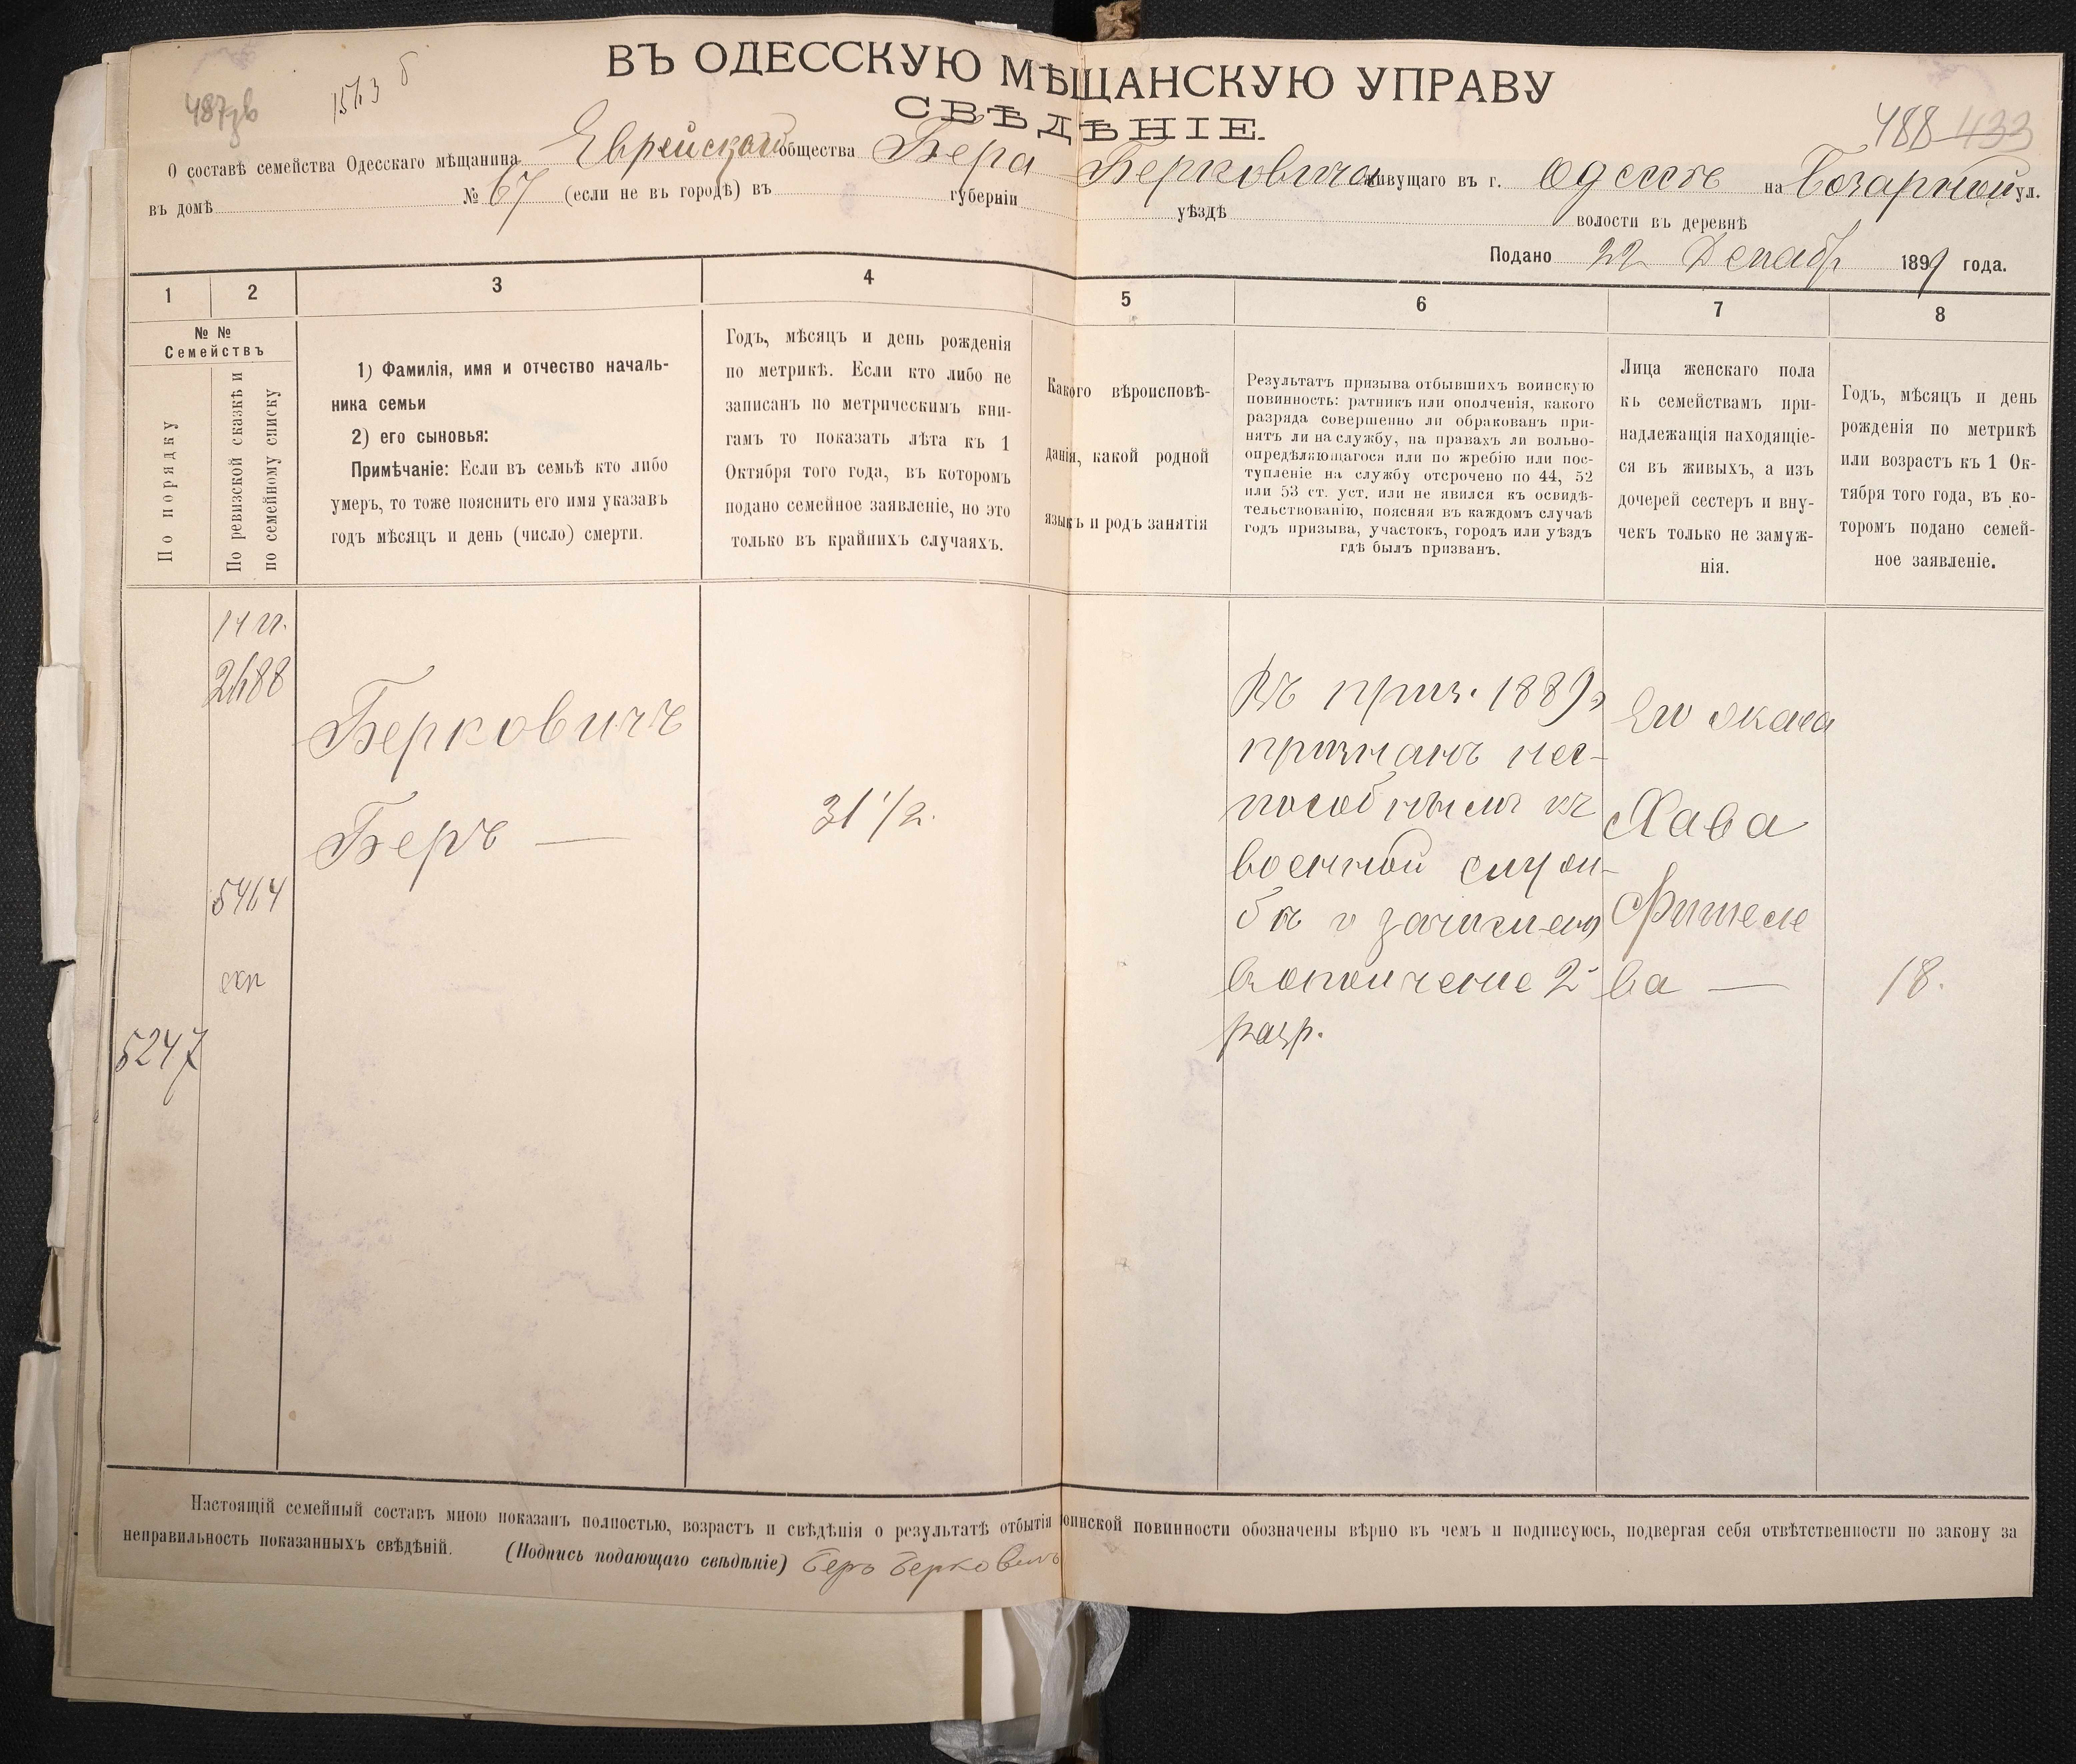 ВЪ ОДЕССКУЮ МѢЩАНСКУЮ УПРАВУ
СВѢДѢНІЕ.
1563 б
488 433
О составѣ семейства Одесскаго мѣщанина Еврейскаго общества Бера Берковича живущаго въ г. Одессѣ на Базарной ул.
въ домѣ № 67 (если не въ городѣ) въ губерніи уѣздѣ волости въ деревнѣ
Подано 22 Декабр 1899 года.
1 2 3 4 5 6 7 8
№ №
Семействъ
По порядку
По ревизской сказкѣ и
по семейному списку
1) Фамилія, имя и отчество началь-
ника семьи
2) его сыновья:
Примѣчаніе: Если въ семьѣ кто либо
умеръ, то тоже пояснить его имя указавъ
годъ мѣсяцъ и день (число) смерти.
Годъ, мѣсяцъ и день рожденія
по метрикѣ. Если кто либо не
записанъ по метрическимъ кни-
гамъ то показать лѣта къ 1
Октября того года, въ которомъ
подано семейное заявленіе, но это
только въ крайнихъ случаяхъ.
Какого вѣроисповѣ-
данія, какой родной
языкъ и родъ занятія
Результатъ призыва отбывшихъ воинскую
повинность: ратникъ или ополченія, какого
разряда совершенно ли обракованъ при-
нятъ ли на службу, на правахъ ли вольно-
опредѣляющагося или по жребію или пос-
тупленіе на службу отсрочено по 44, 52
или 53 ст. уст. или не явился къ освидѣ-
тельствованію, поясняя въ каждомъ случаѣ
годъ призыва, участокъ, городъ или уѣздъ
гдѣ былъ призванъ.
Лица женскаго пола
къ семействамъ при-
надлежащія находящіе-
ся въ живыхъ, а изъ
дочерей сестеръ и вну-
чекъ только не замуж-
нія.
Годъ, мѣсяцъ и день
рожденія по метрикѣ
или возрастъ къ 1 Ок-
тября того года, въ ко-
торомъ подано семей-
ное заявленіе.
2488
5464
5247
Берковичъ
Беръ —
31 1/2.
Въ приз. 1889
признанъ нес-
пособнымъ къ
военной служ-
бѣ и зачислен
в ополчение 2
разр.
Его жена
Хава
Фишеле
ва —
18.
Настоящій семейный составъ мною показанъ полностью, возрастъ и свѣдѣнія о результатѣ отбытія воинской повинности обозначены вѣрно въ чемъ и подписуюсь, подвергая себя отвѣтственности по закону за
неправильность показанныхъ свѣдѣній. (Подпись подающаго свѣдѣніе) Беръ Берковичъ